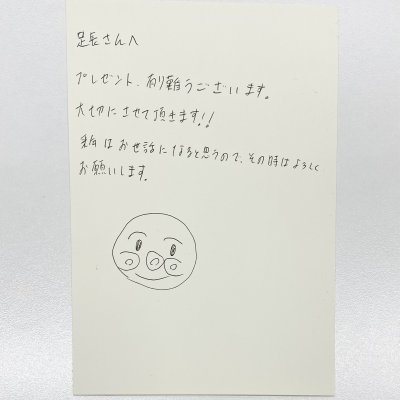 足長さんへ
プレゼント、有り難うございます。
大切にさせて頂きます!!
来年はお世話になると思うので、その時はよろしく
お願いします。